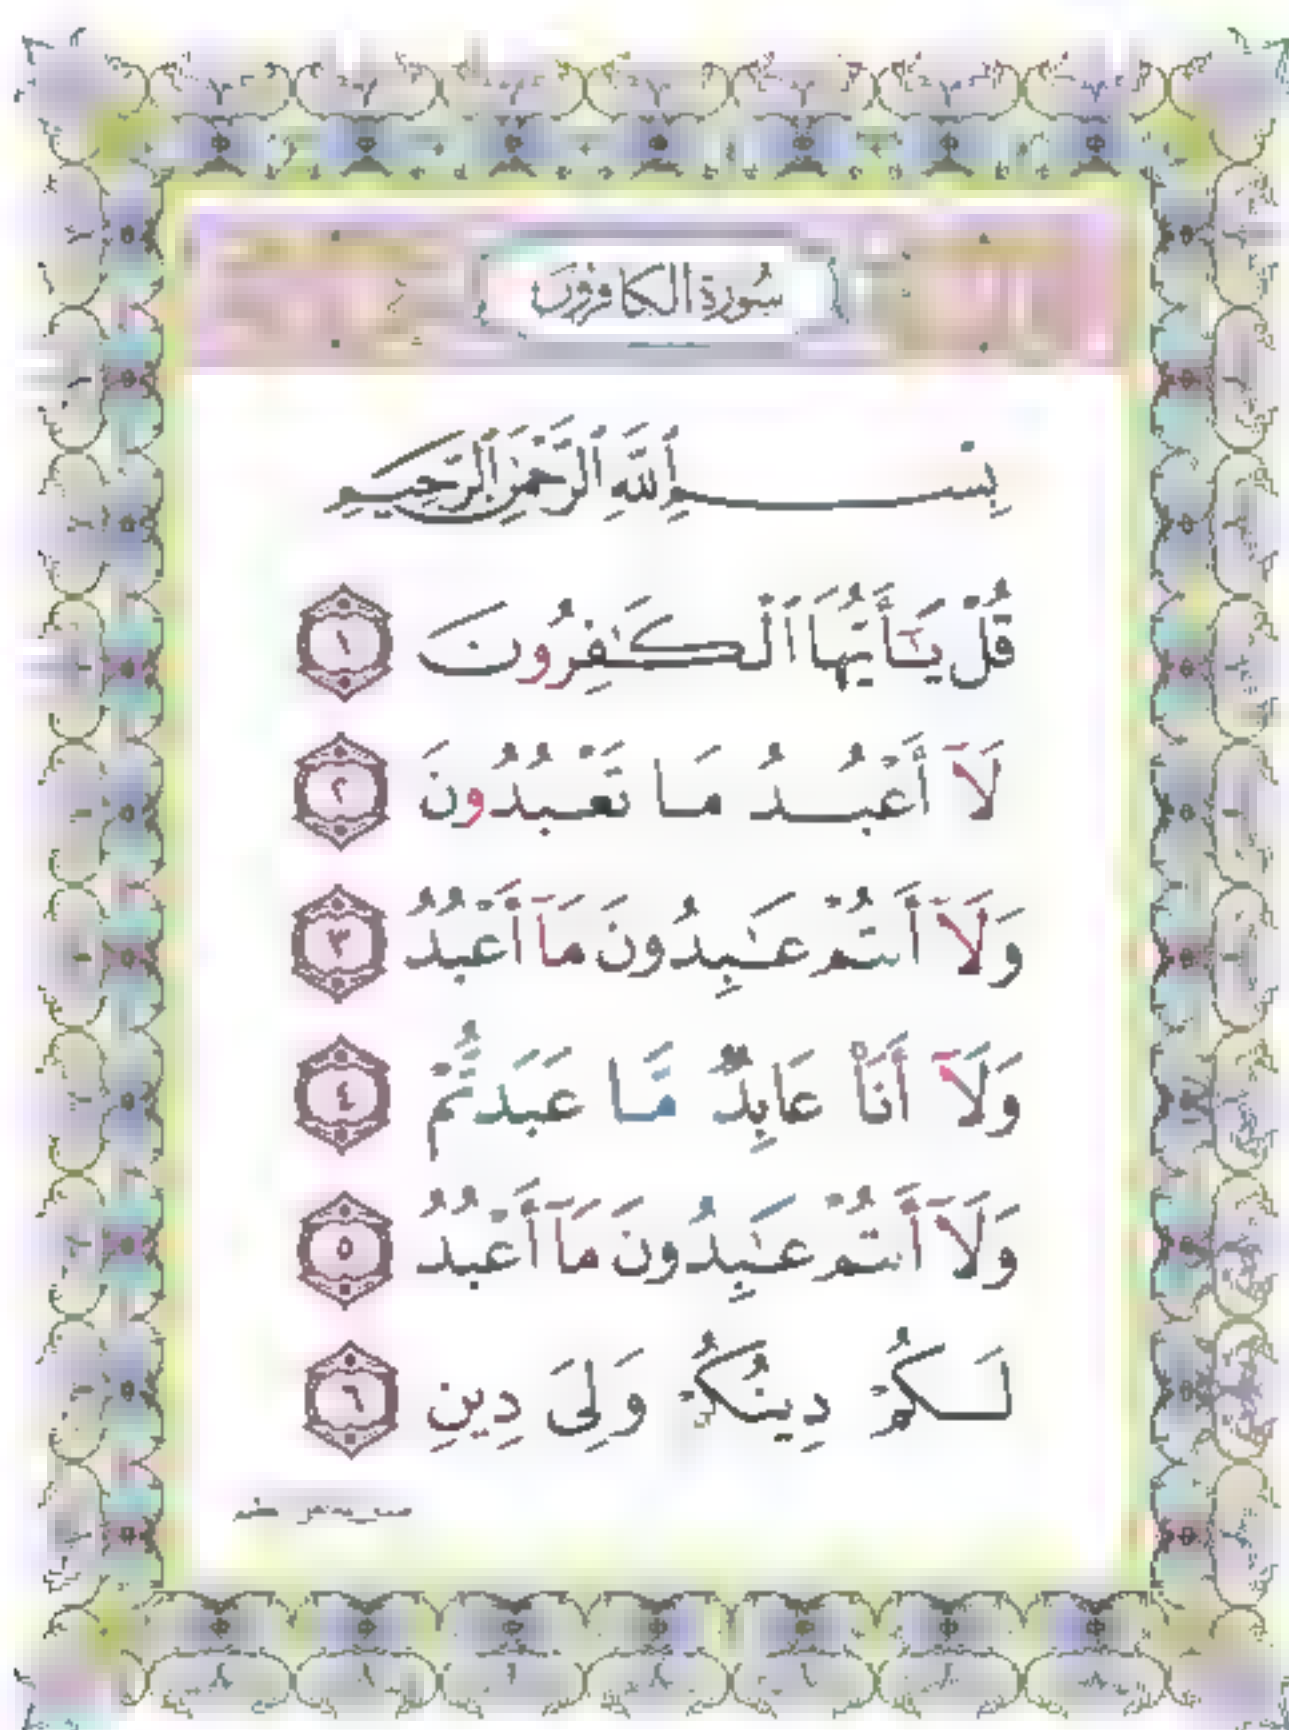 سُورَةُ الكَافِرُونَ
بِسْمِ ٱللَّهِ ٱلرَّحْمَٰنِ ٱلرَّحِيمِ
قُلْ يَٰٓأَيُّهَا ٱلْكَٰفِرُونَ ١
لَآ أَعْبُدُ مَا تَعْبُدُونَ ٢
وَلَآ أَنتُمْ عَٰبِدُونَ مَآ أَعْبُدُ ٣
وَلَآ أَنَا۠ عَابِدٌ مَّا عَبَدتُّمْ ٤
وَلَآ أَنتُمْ عَٰبِدُونَ مَآ أَعْبُدُ ٥
لَكُمْ دِينُكُمْ وَلِىَ دِينِ ٦